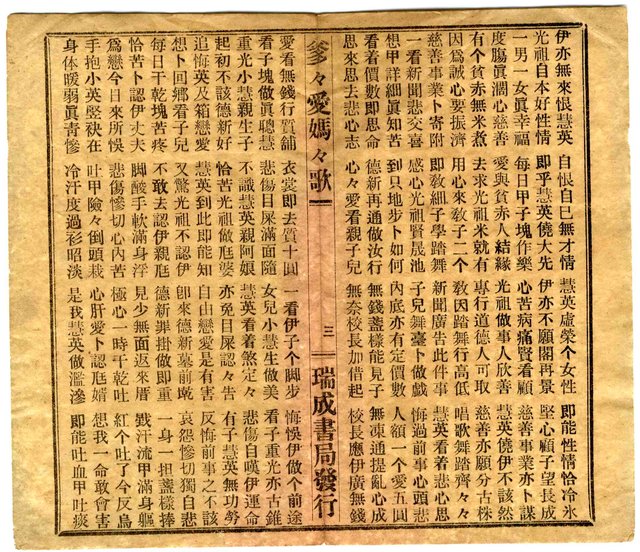 伊亦無來恨慧英　自恨自已無才情　慧英虛榮个女性　即能性情恰冷氷
光祖自本好性情　即乎慧英僥大先　伊亦不願閣再景　堅心顧子望長成
一男一女眞幸福　每日甲子塊作樂　心苦病痛賢看顧　慈善事業亦卜謀
度腸眞濶心慈善　愛與貧赤人結緣　光祖做事人欣善　慧英僥伊不該然
有个貧赤無米煮　去求光祖米就有　專行道德人可取　慈善亦願分古株
因為誠心要振濟　用心來敎子二个　敎因踏舞行高低　唱歌舞踏齊々々
慈善事業卜寄附　即敎細子學踏舞　新聞廣告此件事　慧英看着悲心思
一看新聞悲交喜　感心光祖賢晟池　子兒舞臺卜做戲　悔過前事心頭悲
想甲詳細眞知苦　到只地步卜如何　內底亦有定價數　人額一个愛五圓
看着價數即思命　德新再通做汝行　無錢盞樣能見子　無凍通提亂心成
思來思去悲心志　心々愛看親子兒　無奈校長加借起　校長應伊廣無錢
爹々愛媽々歌　三　瑞成書局發行
愛看無錢行質舖　衣裳即去質十圓　一看伊子个脚步　悔悞伊做个前途
看子塊做眞聰慧　悲傷目屎滿面隨　女兒小慧生做美　看子重光亦古錐
重光小慧親生子　不識慧英親阿娘　慧英看着煞定々　悲傷自嘆伊運命
起初不該德新好　恰苦光祖做厖婆　亦免目屎認々告　有子慧英無功勞
追悔英及箱戀愛　慧英到此即能知　自由戀愛是有害　反悔前事之不該
想卜回鄉看子兒　又驚光祖不認伊　卽來德新墓前乾　哀怨慘切獨自悲
每日干乾塊苦疼　不敢去認伊親厖　德新罪掛做即重　一身一担盞樣捧
恰苦卜認伊丈夫　脚酸手軟滿身浮　見少無面返來厝　汗流甲滿身軀
為戀今日來所悞　悲傷慘切心內苦　極心一時干乾吐　紅个吐了今反烏
手抱小英竪秧在　吐甲險々倒頭栽　心肝愛卜認厖婿　想我一命敢會害
身体暖弱眞靑慘　冷汗度過衫昭淡　是我慧英做濫滲　即能吐血甲吐痰